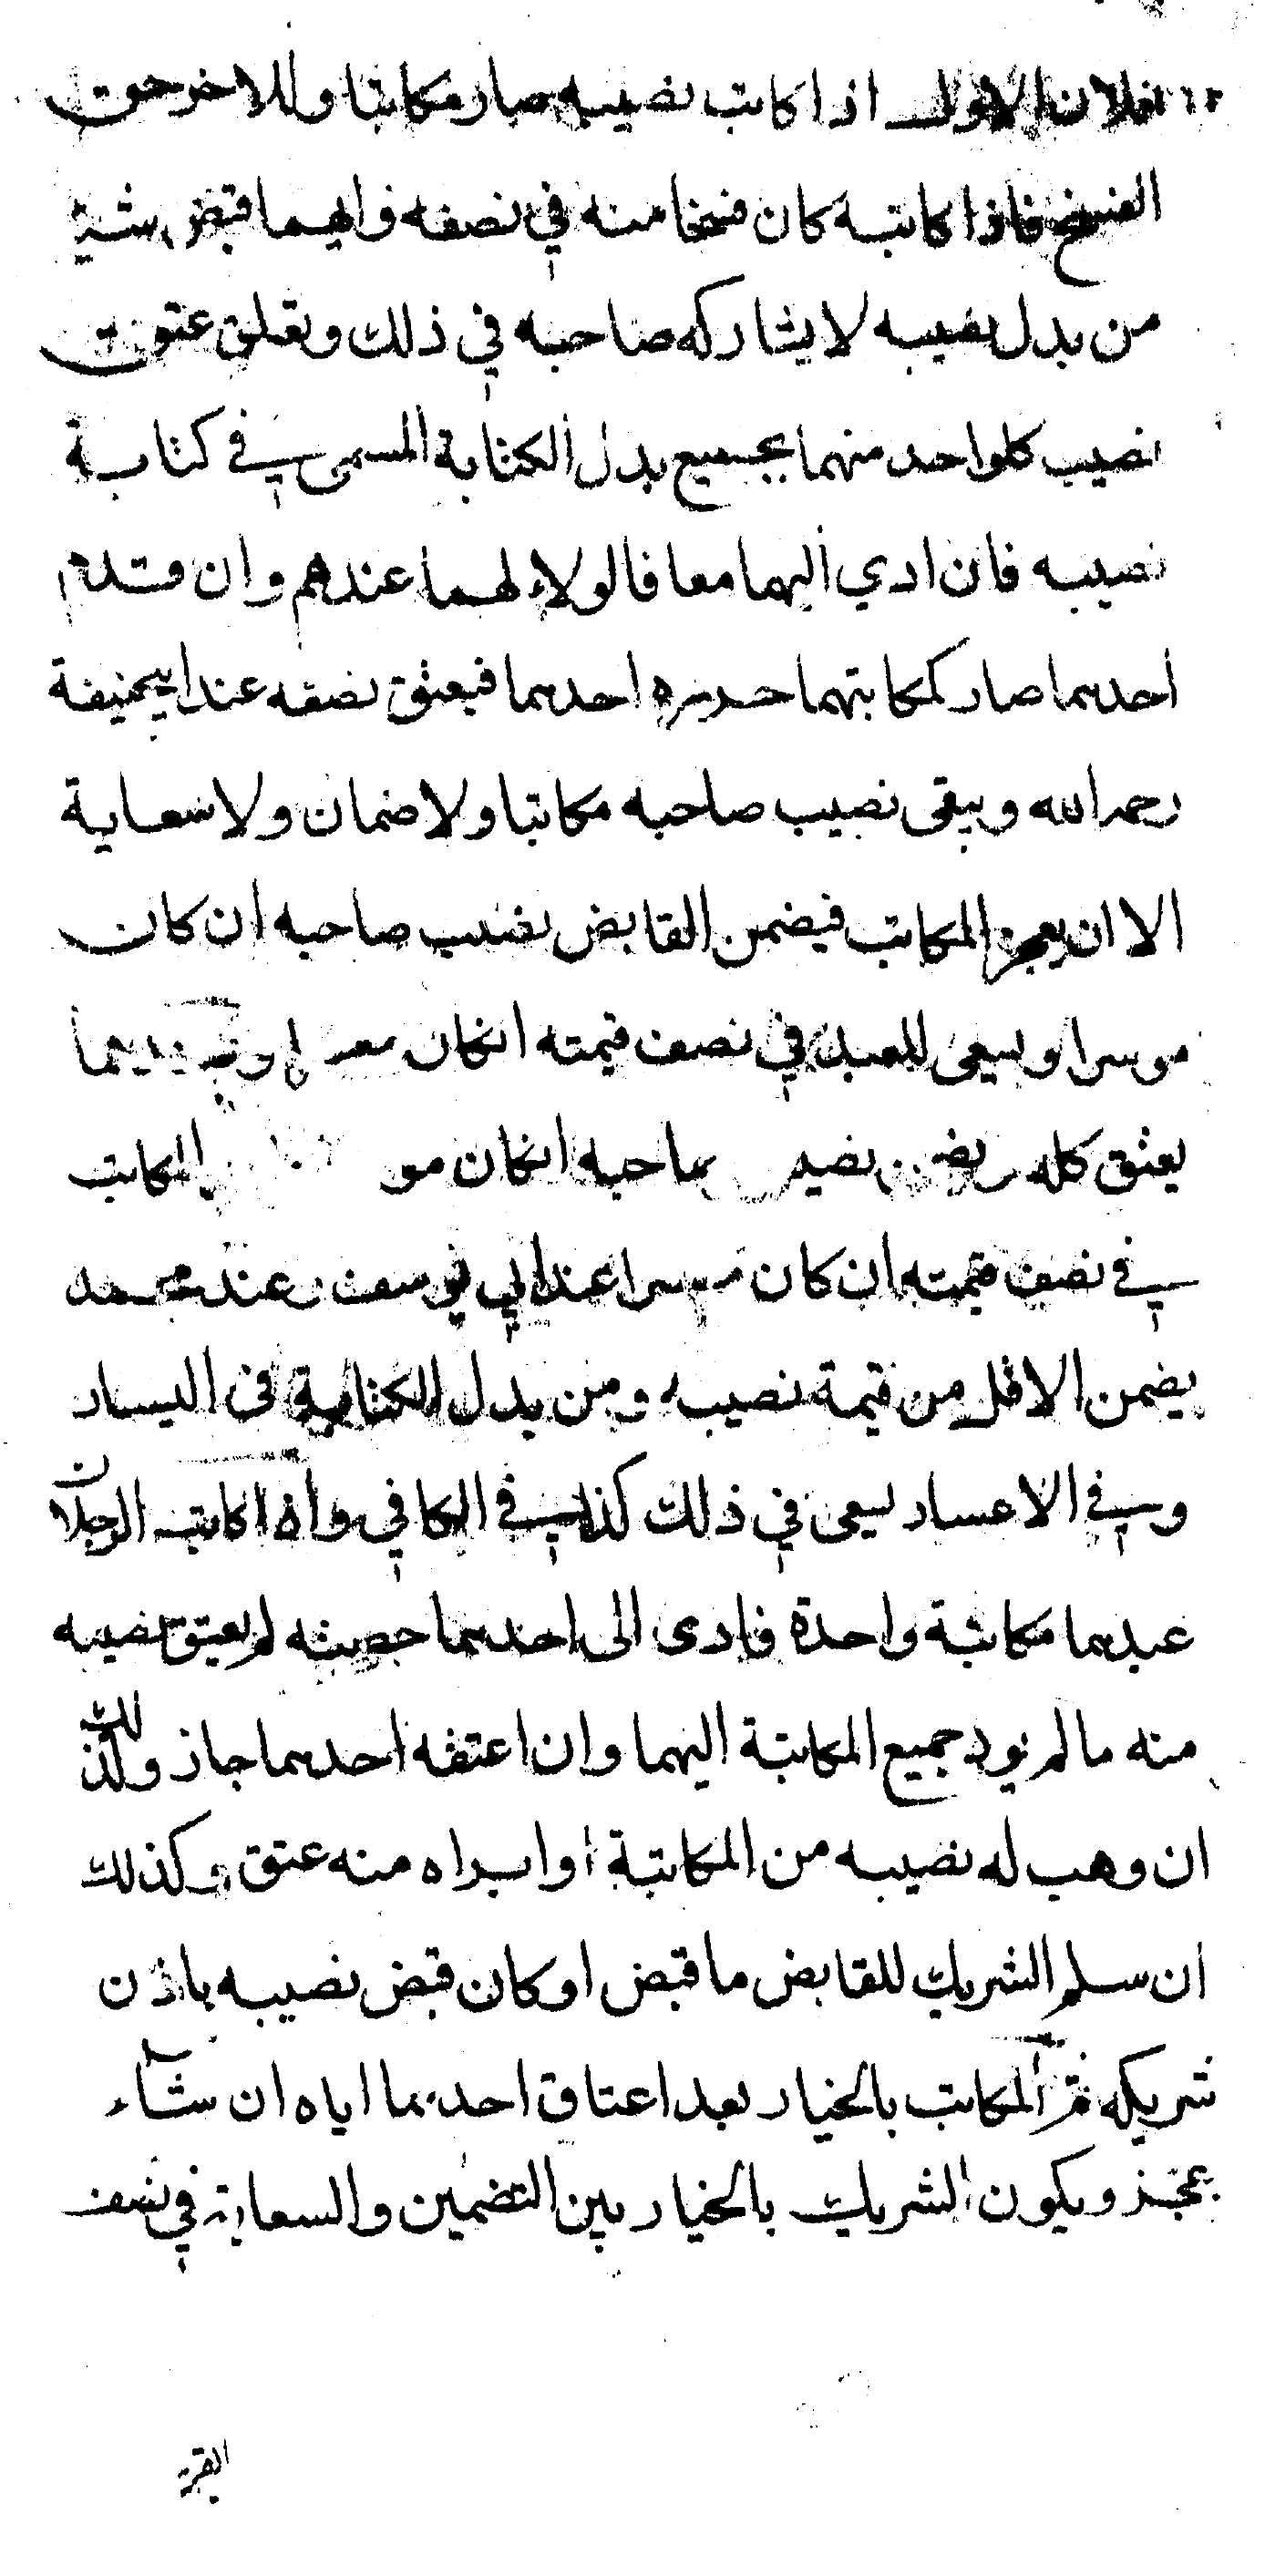 فلان الاول اذا كاتب نصيبه صار مكاتبا وللاخر حق
الفسخ فاذا كاتبه كان فسخا منه في نصفه وايهما قبض شيا
من بدل نصيبه لا يشاركه صاحبه في ذلك وتعلق عتق
نصيب كلواحد منهما بجميع بدل الكتابة المسمى في كتابة
نصيبه فان ادي اليهما معا فالولاء لهما عندهم وان قدم
احدهما صار كمكاتبهما حرره احدهما فيعتق نصفه عند ابيحنيفة
رحمه الله ويبقى نصيب صاحبه مكاتبا ولا ضمان ولا سعاية
الا ان يعجز المكاتب فيضمن القابض نصيب صاحبه ان كان
موسرا ويسعى العبد في نصف قيمته انكان
يعتق كله نصيب صاحبه انكان المكاتب
في نصف قيمته ان كان عند ابي يوسف وعند محمد
يضمن الاقل من قيمة نصيبه ومن بدل الكتابة في اليسار
وفي الاعسار يسعى في ذلك كذا في الكافي واذا كاتب الرجلان
عبدهما مكاتبة واحدة فادى الى احدهما حصته لم يعتق نصيبه
منه ما لم يود جميع المكاتبة اليهما وان اعتقه احدهما جاز وكذلك
ان وهب له نصيبه من المكاتبة او ابراه منه عتق وكذلك
ان سلم الشريك للقابض ما قبض او كان قبض نصيبه باذن
شريكه ثم المكاتب بالخيار بعد اعتاق احدهما اياه ان شاء
عجز ويكون الشريك بالخيار بين التضمين والسعاية في نصف